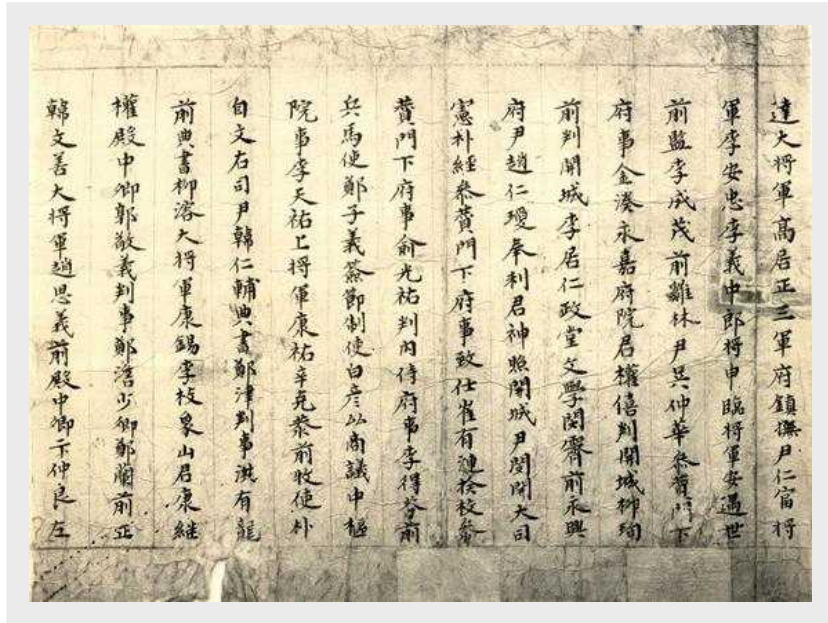 達大将軍高居正三軍府鎮撫尹仁富将
軍李安忠李義中郎将申臨将軍安遇世
前監李成茂前雞林尹吳仲華叅賛門下
府事金湊永嘉府院君權僖判開城柳珣
前判開城李居仁政堂文學閔霽前永興
府尹趙仁瓊奉利君神照開城尹閔開大司
憲朴經叅賛門下府事致仕崔有漣檢校叅
賛門下府事俞光祐判內侍府事李得芬前
兵馬使鄭子義簽節制使白彦以商議中樞
院事李天祐上将軍康祐辛克恭前牧使朴
自文右司尹韓仁輔典書鄭津判事洪有龍
前典書柳濬大将軍康錫李枝象山君康継
權殿中卿郭敬義判事鄭浩少卿鄭蘭前正
韓文善大将軍趙思義前殿中卿卞仲良左